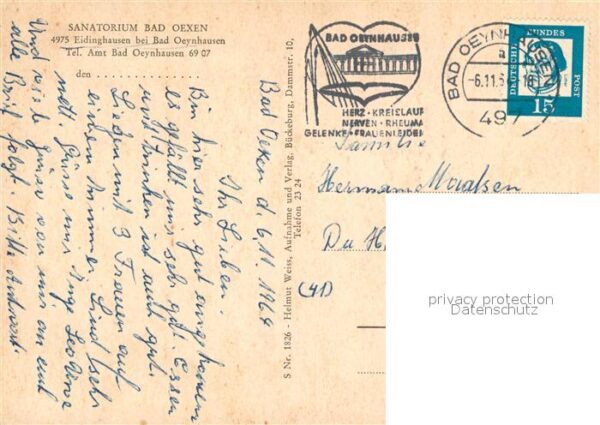 SANATORIUM BAD OEXEN
4975 Eidinghausen bei Bad Oeynhausen
Tel. Amt Bad Oeynhausen 69 07
den
Bad Oexen d. 6.11.1964
Ihr Lieben.
Bin hier sehr gut angekommen
es gefällt mir sehr gut. Essen
und trinken ist auch gut.
Liege mit 3 Frauen auf
einem Zimmer. Sind sehr
nett. Grüsse mir Inge
Und viele Grüsse von mir an euch
alle Brief folgt. Bitte Antwort.
S Nr. 1826 - Helmut Weiss, Aufnahme und Verlag, Bückeburg, Dammstr. 10,
Telefon 23 24
BAD OEYNHAUSEN
HERZ · KREISLAUF
NERVEN · RHEUMA
GELENKE · FRAUENLEIDEN
BAD OEYNHAUSEN
a
-6.11.6
497
DEUTSCHE BUNDESPOST
15
Familie
Hermann
(41)
privacy protection
Datenschutz